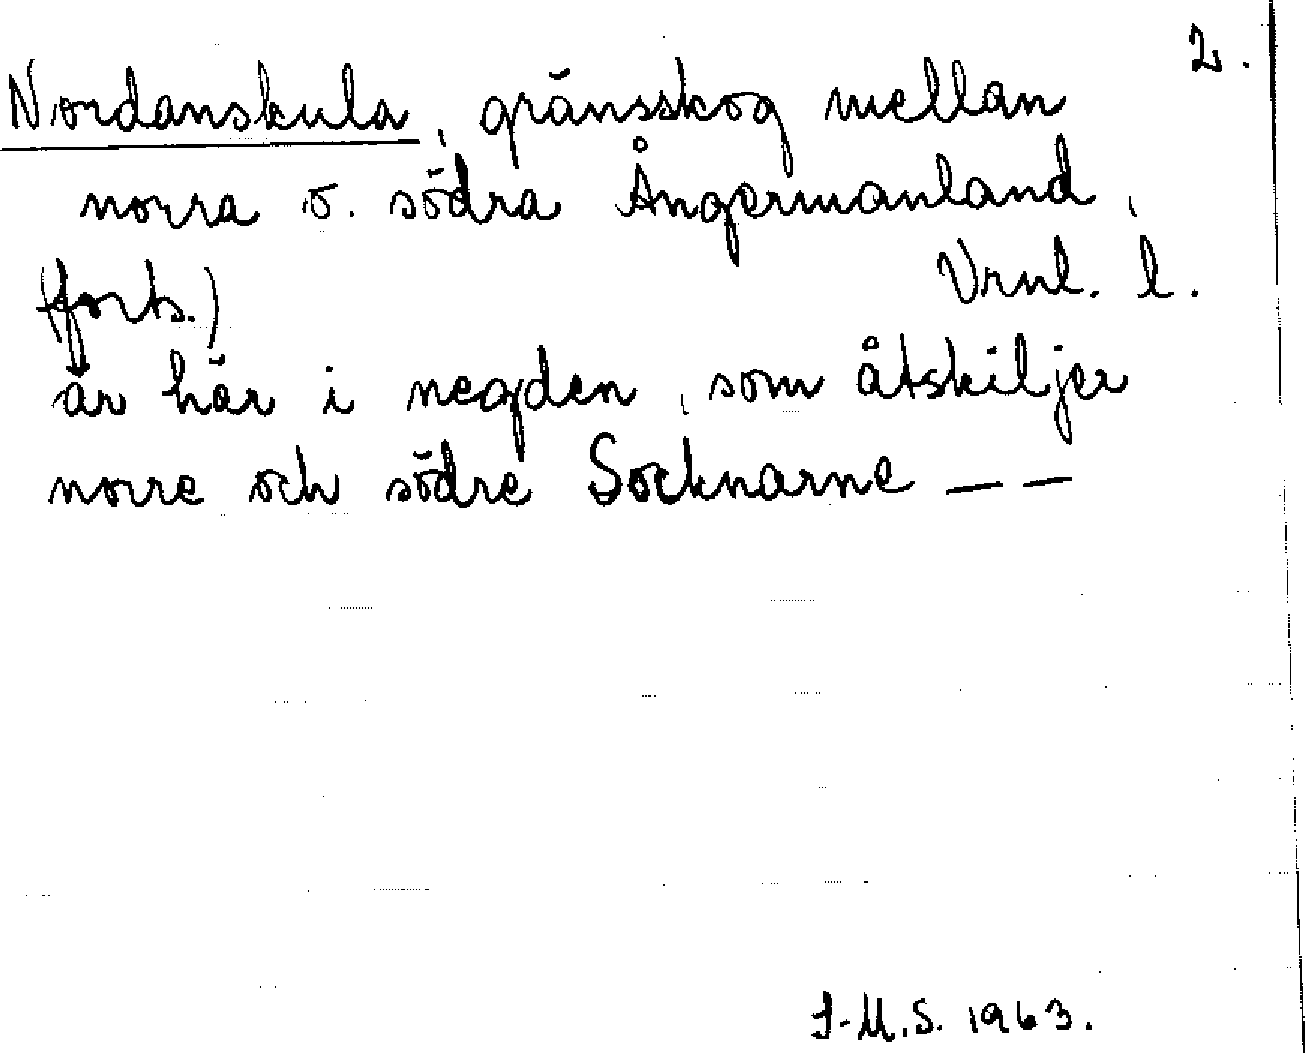 2.
Nordanskula, gränsskog mellan
norra o. södra Ångermanland,
(forts.) Vrnl. l.
är här i negden, som åtskiljer
norre och södre Socknarne — —
I-M.S. 1963.